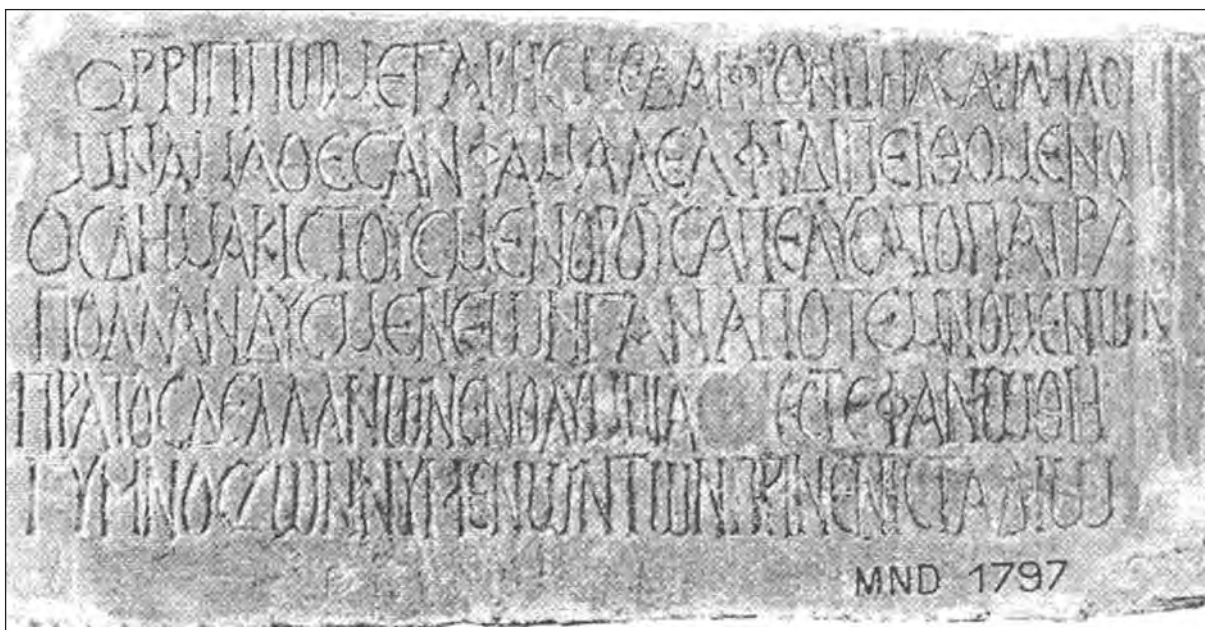 ΟΡΡΙΠΠΩΜΕΓΑΡΗCΜΕΔΑΙΦΡΟΝΙΤΗΔΕΑΡΙΔΗΛΟ
ΜΝΑΜΑΘΕCΑΝΦΑΜΑΔΕΛΦΙΔΙΠΕΙΘΟΜΕΝΟ
ΟCΔΗΜΑΚΙCΤΟΥCΜΕΝΟΡΟΥCΑΠΕΛΥCΑΤΟΠΑΤΡΑ
ΠΟΛΛΑΝΔΥCΜΕΝΕΩΝΓΑΝΑΠΟΤΕΜΝΟΜΕΝΩΝ
ΠΡΑΤΟCΔΕΛΛΑΝΩΝΕΝΟΛΥΜΠΙΑ ΕCΤΕΦΑΝΩΘΗ
ΓΥΜΝΟCΖΩΝΝΥΜΕΝΩΝΤΩΝΠΡΙΝΕΝΙCΤΑΔΙΩ
MND 1797